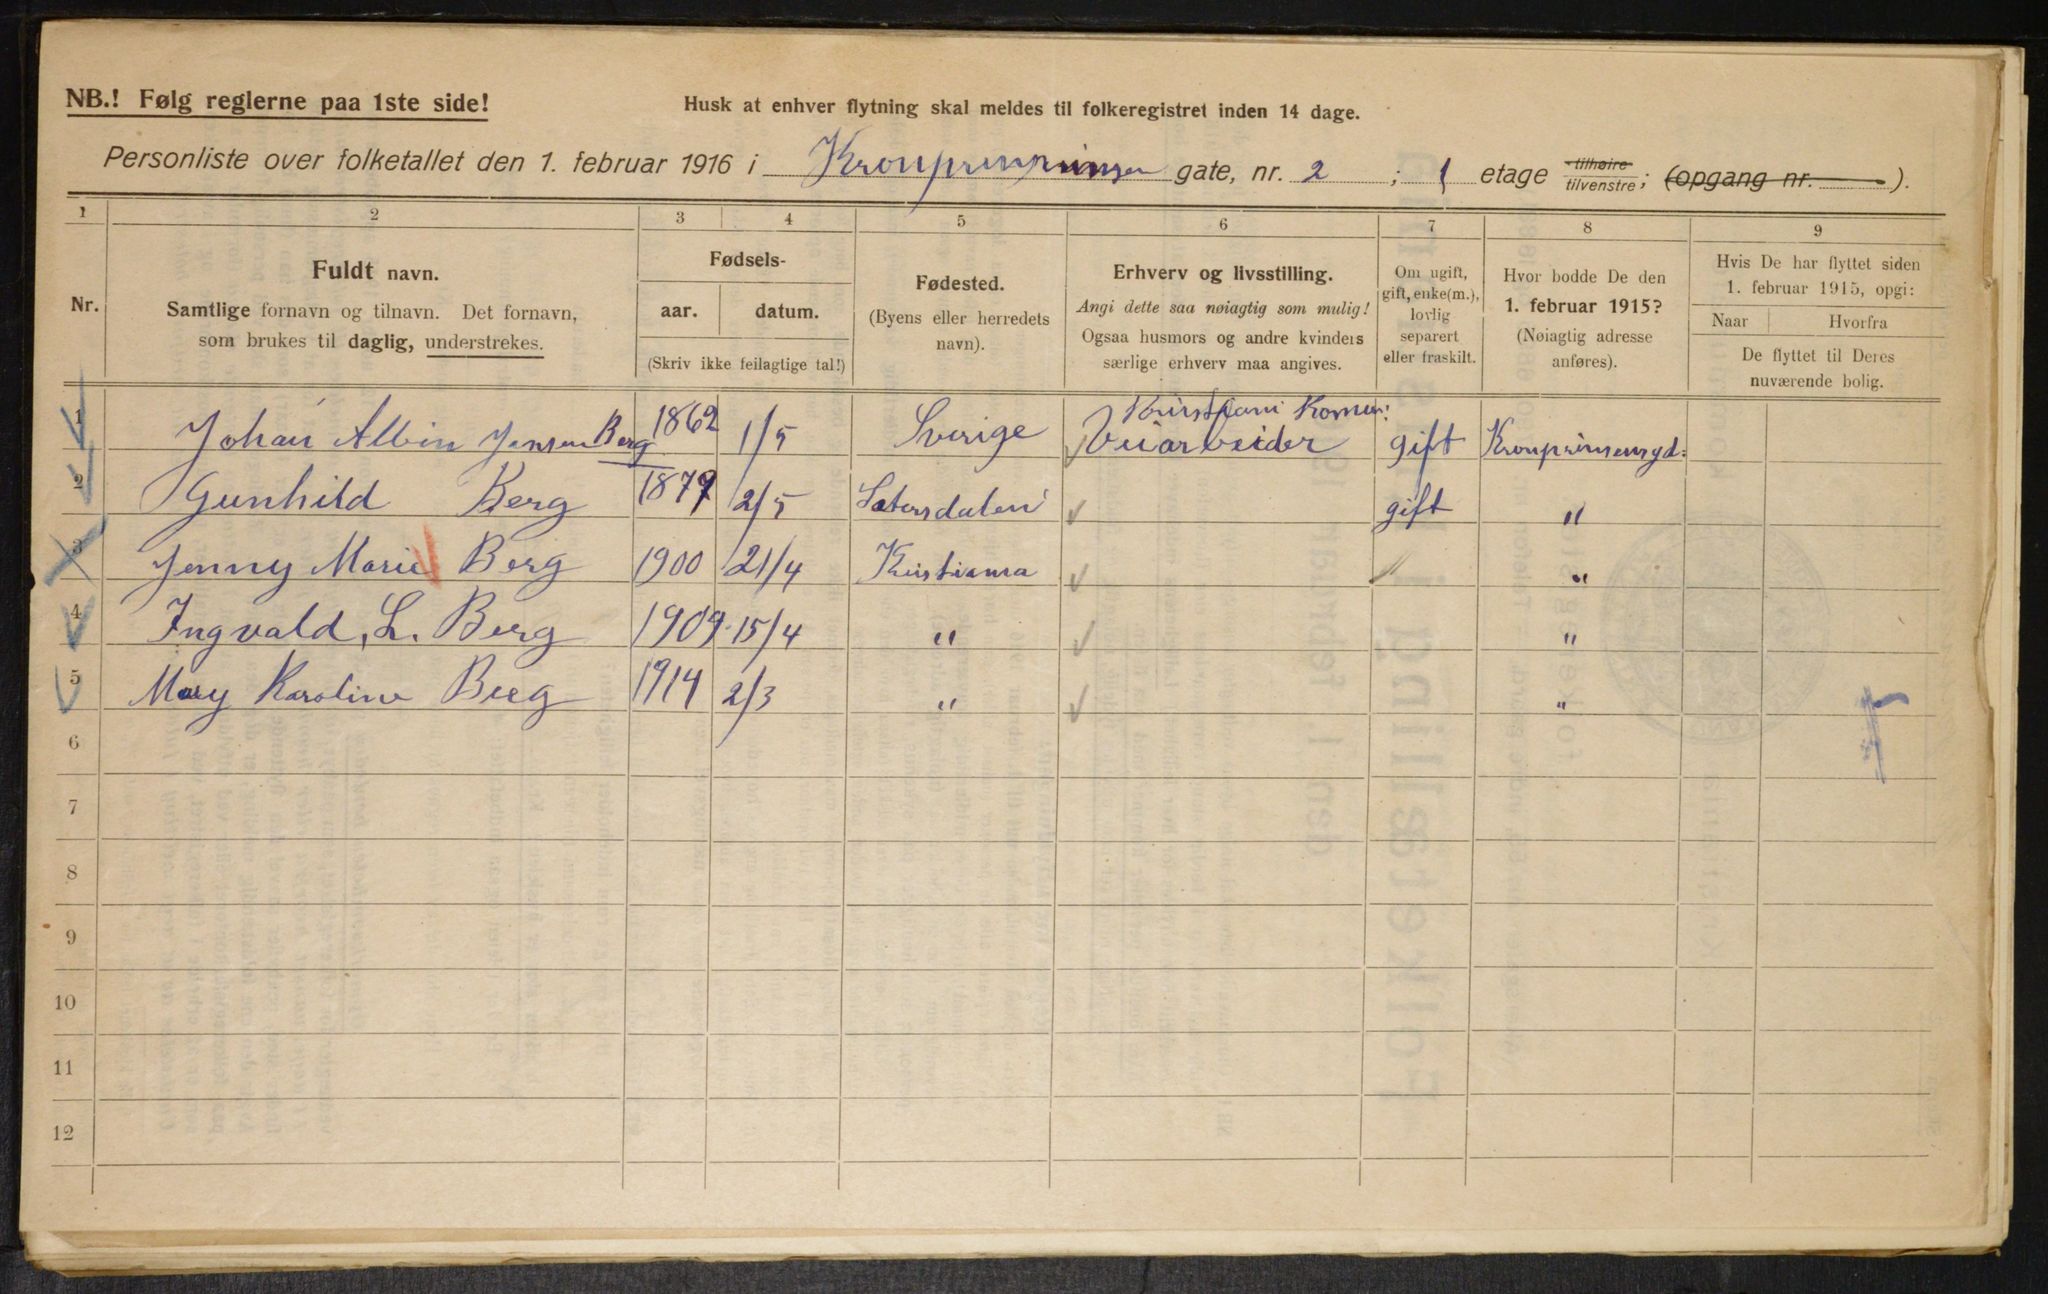 NB.! Følg reglerne paa 1ste side!
Husk at enhver flytning skal meldes til folkeregistret inden 14 dage.
Personliste over folketallet den 1. februar 1916 i gate, nr. 2 ; 1 etage tilhøire tilvenstre; (opgang nr. ).
1 2 3 4 5 6 7 8 9
Nr.
Fuldt navn.
Samtlige fornavn og tilnavn. Det fornavn,
som brukes til daglig, understrekes.
Fødsels-
aar. datum.
(Skriv ikke feilagtige tal!)
Fødested.
(Byens eller herredets
navn).
Erhverv og livsstilling.
Angi dette saa nøiagtig som mulig!
Ogsaa husmors og andre kvinders
særlige erhverv maa angives.
Om ugift,
gift, enke(m.),
lovlig
separert
eller fraskilt.
Hvor bodde De den
1. februar 1915?
(Nøiagtig adresse
anføres).
Hvis De har flyttet siden
1. februar 1915, opgi:
Naar Hvorfra
De flyttet til Deres
nuværende bolig.
1 Johan Albin Jensen Berg 1862 1/5 Sverige Veiarbeider gift
2 Gunhild Berg 1879 2/5 gift "
3 Jenny Marie Berg 1900 21/4 Kristiania "
4 Ingvald. L. Berg 1909 15/4 " "
5 Mary Karoline Berg 1914 2/3 " "
6
7
8
9
10
11
12